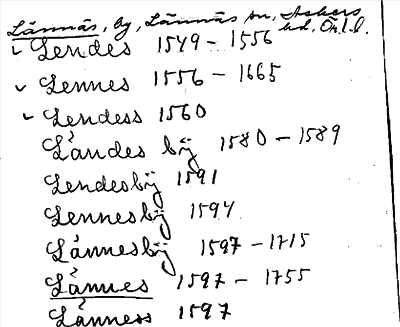 Lännäs, by, Lännäs sn, Askers hd, Ör.l.
Lendes 1549 – 1556
Lennes 1556 – 1665
Lendess 1560
Låndes bÿ 1580 – 1589
Lendesbÿ 1591
Lennesbÿ 1594
Lånnesbÿ 1597 – 1715
Lånnes 1597 – 1755
Lånness 1597